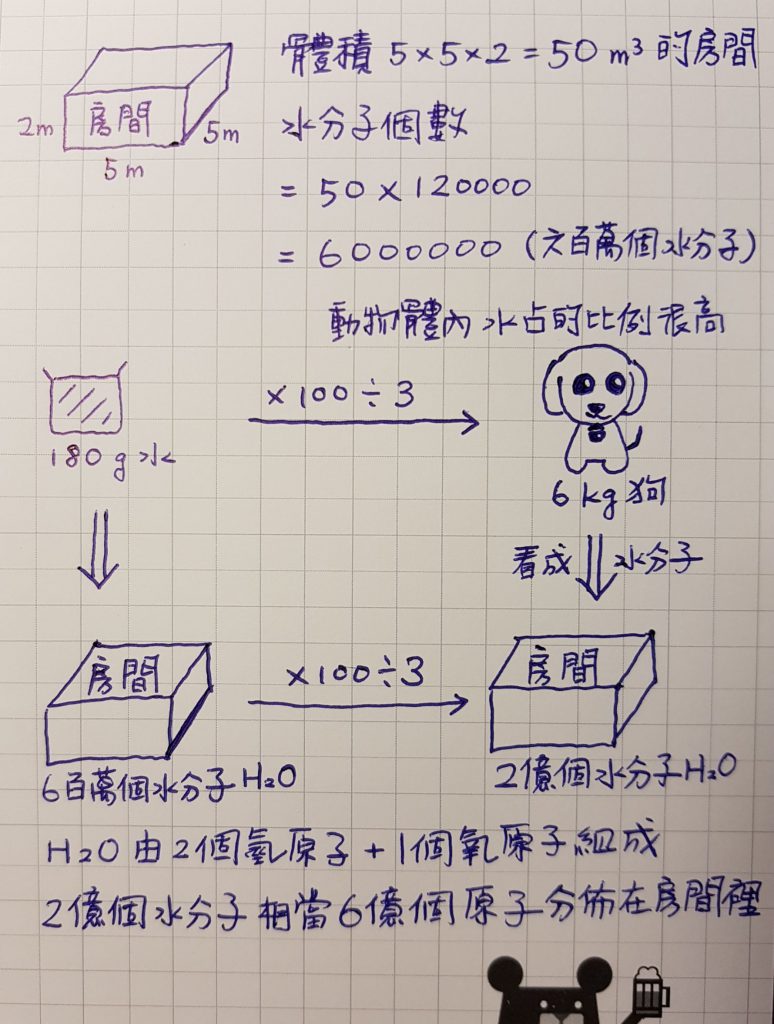 體積 5×5×2 = 50 m³ 的房間
2m
房間
5m
5m
水分子個數
= 50 × 120000
= 6000000 (六百萬個水分子)
動物體內 水占的比例很高
180 g 水
×100÷3
6 kg 狗
看成 水分子
房間
×100÷3
房間
6百萬個水分子H₂O
2億個水分子H₂O
H₂O 由 2個氫原子 + 1個氧原子組成
2億個水分子 相當 6億個原子分佈在房間裡